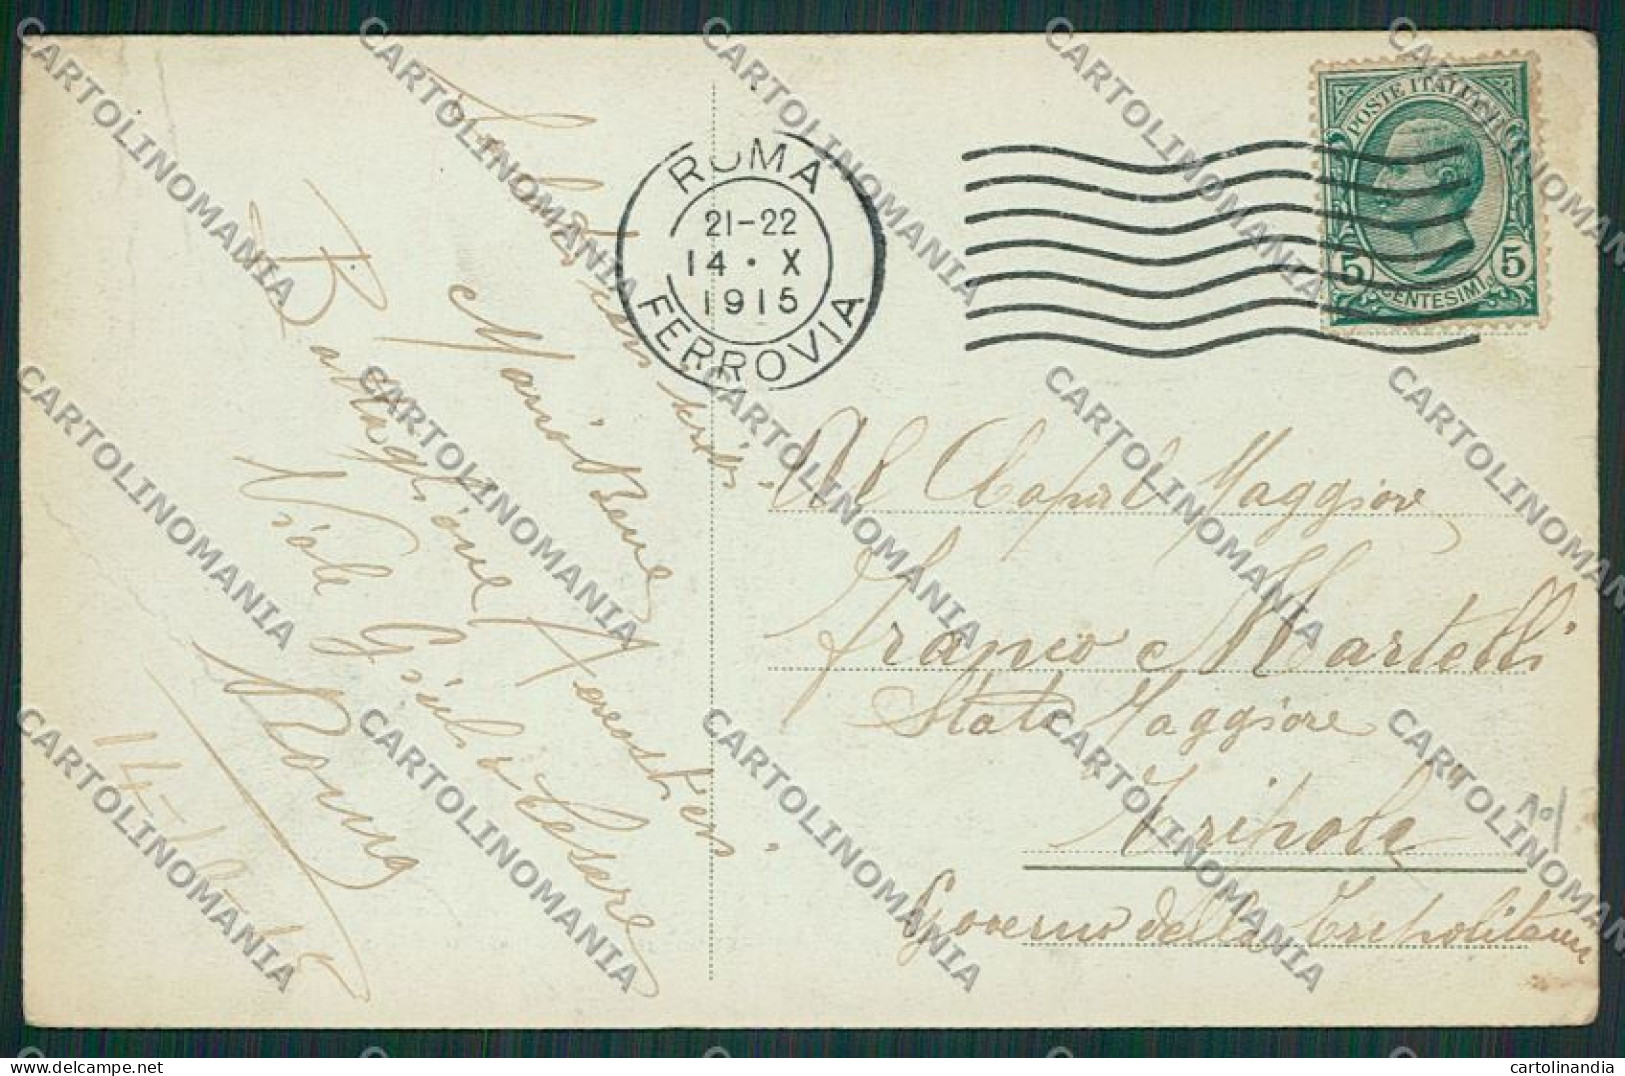 Mario Bene
Battaglione Aerostieri
Viale Giulio Cesare
Roma
14-10-15
ROMA
21-22
14 • X
1915
FERROVIA
POSTE ITALIANE
5 CENTESIMI 5
Al Caporal Maggiore
Franco Martelli
Stato Maggiore
Tripoli
Governo della Tripolitania
CARTOLINOMANIA
cartolinandia